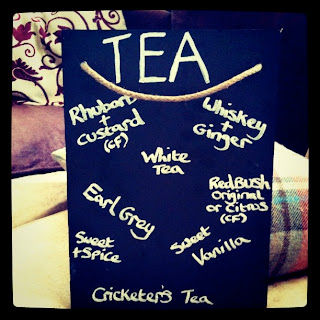 TEA
Rhubarb
+
Custard
(CF)
Whiskey
+
Ginger
White
Tea
Earl Grey
RedBush
Original
or Citrus
(CF)
Sweet
+ Spice
Sweet
Vanilla
Cricketer's Tea